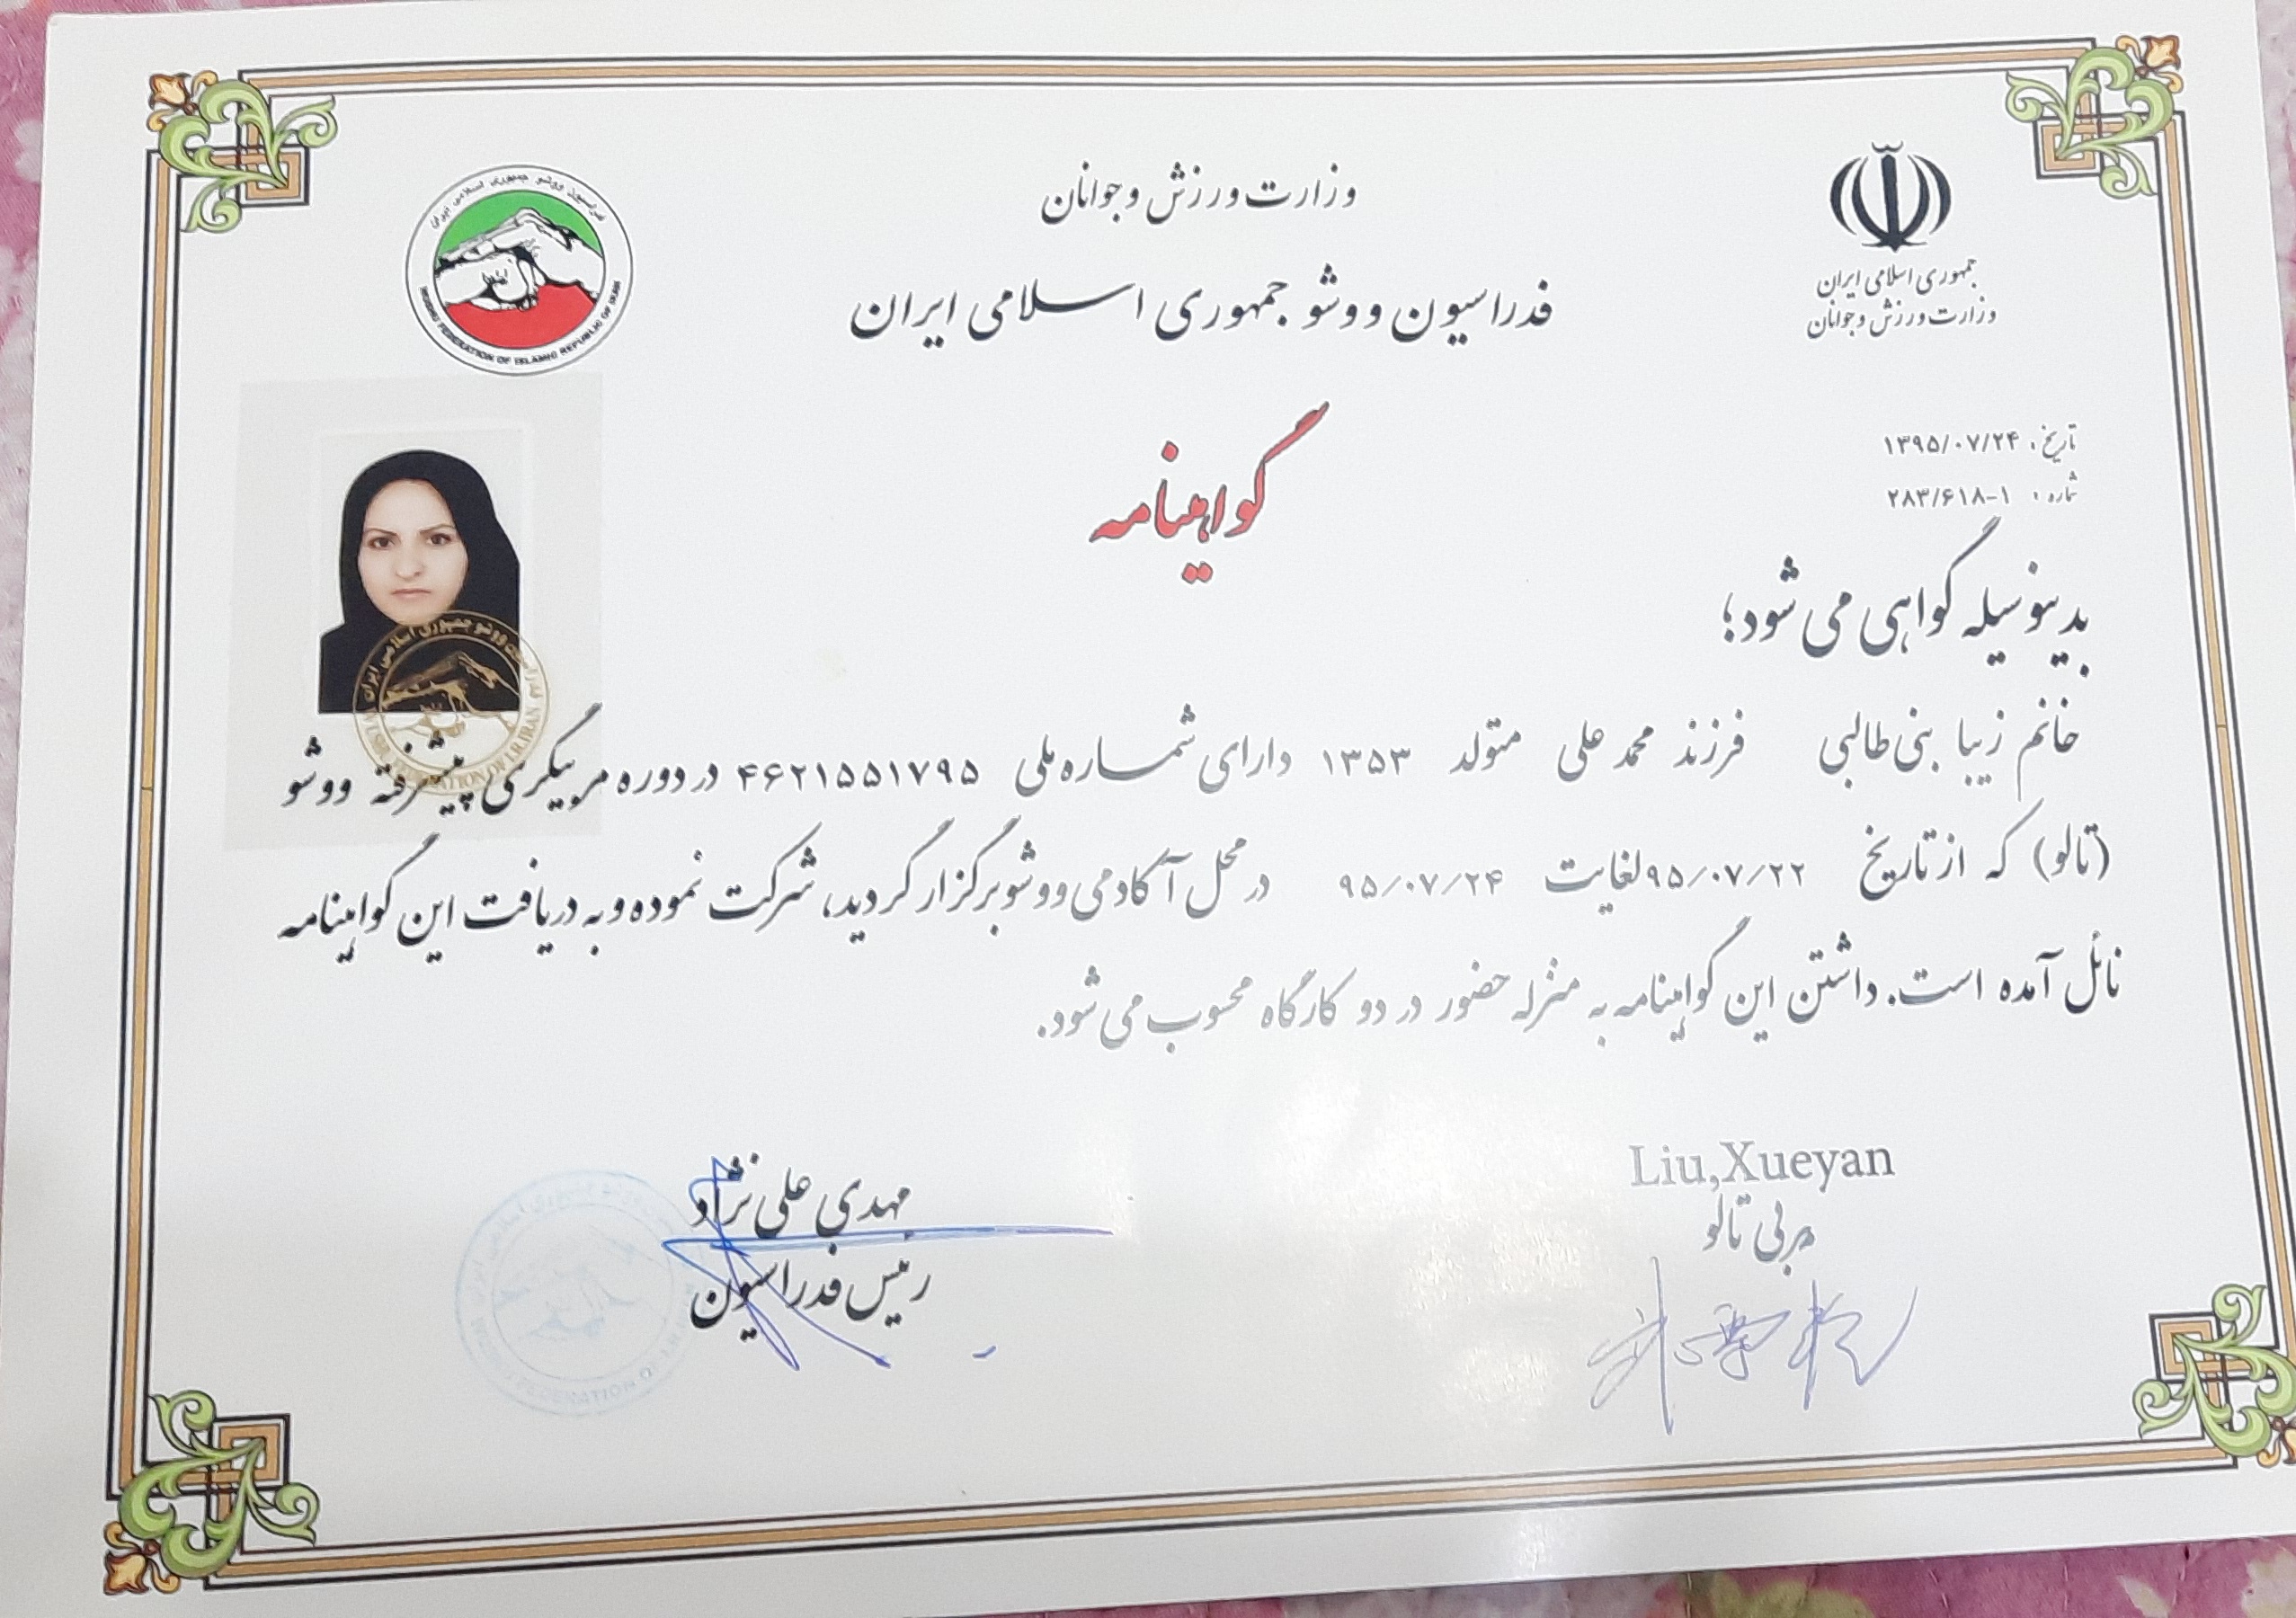 وزارت ورزش و جوانان
فدراسیون ووشو جمهوری اسلامی ایران
جمهوری اسلامی ایران
وزارت ورزش و جوانان
WUSHU FEDERATION OF ISLAMIC REPUBLIC OF IRAN
گواهینامه
تاریخ: ۱۳۹۵/۰۷/۲۴
شماره: ۲۸۳/۶۱۸-۱
بدینوسیله گواهی می شود؛
خانم زیبا بنی طالبی فرزند محمد علی متولد ۱۳۵۳ دارای شماره ملی ۴۶۲۱۵۵۱۷۹۵ در دوره مربیگری پیشرفته ووشو
(تالو) که از تاریخ ۹۵/۰۷/۲۲ لغایت ۹۵/۰۷/۲۴ در محل آکادمی ووشو برگزار گردید، شرکت نموده و به دریافت این گواهینامه
نائل آمده است. داشتن این گواهینامه به منزله حضور در دو کارگاه محسوب می شود.
Liu,Xueyan
مربی تالو
مهدی علی نژاد
رئیس فدراسیون